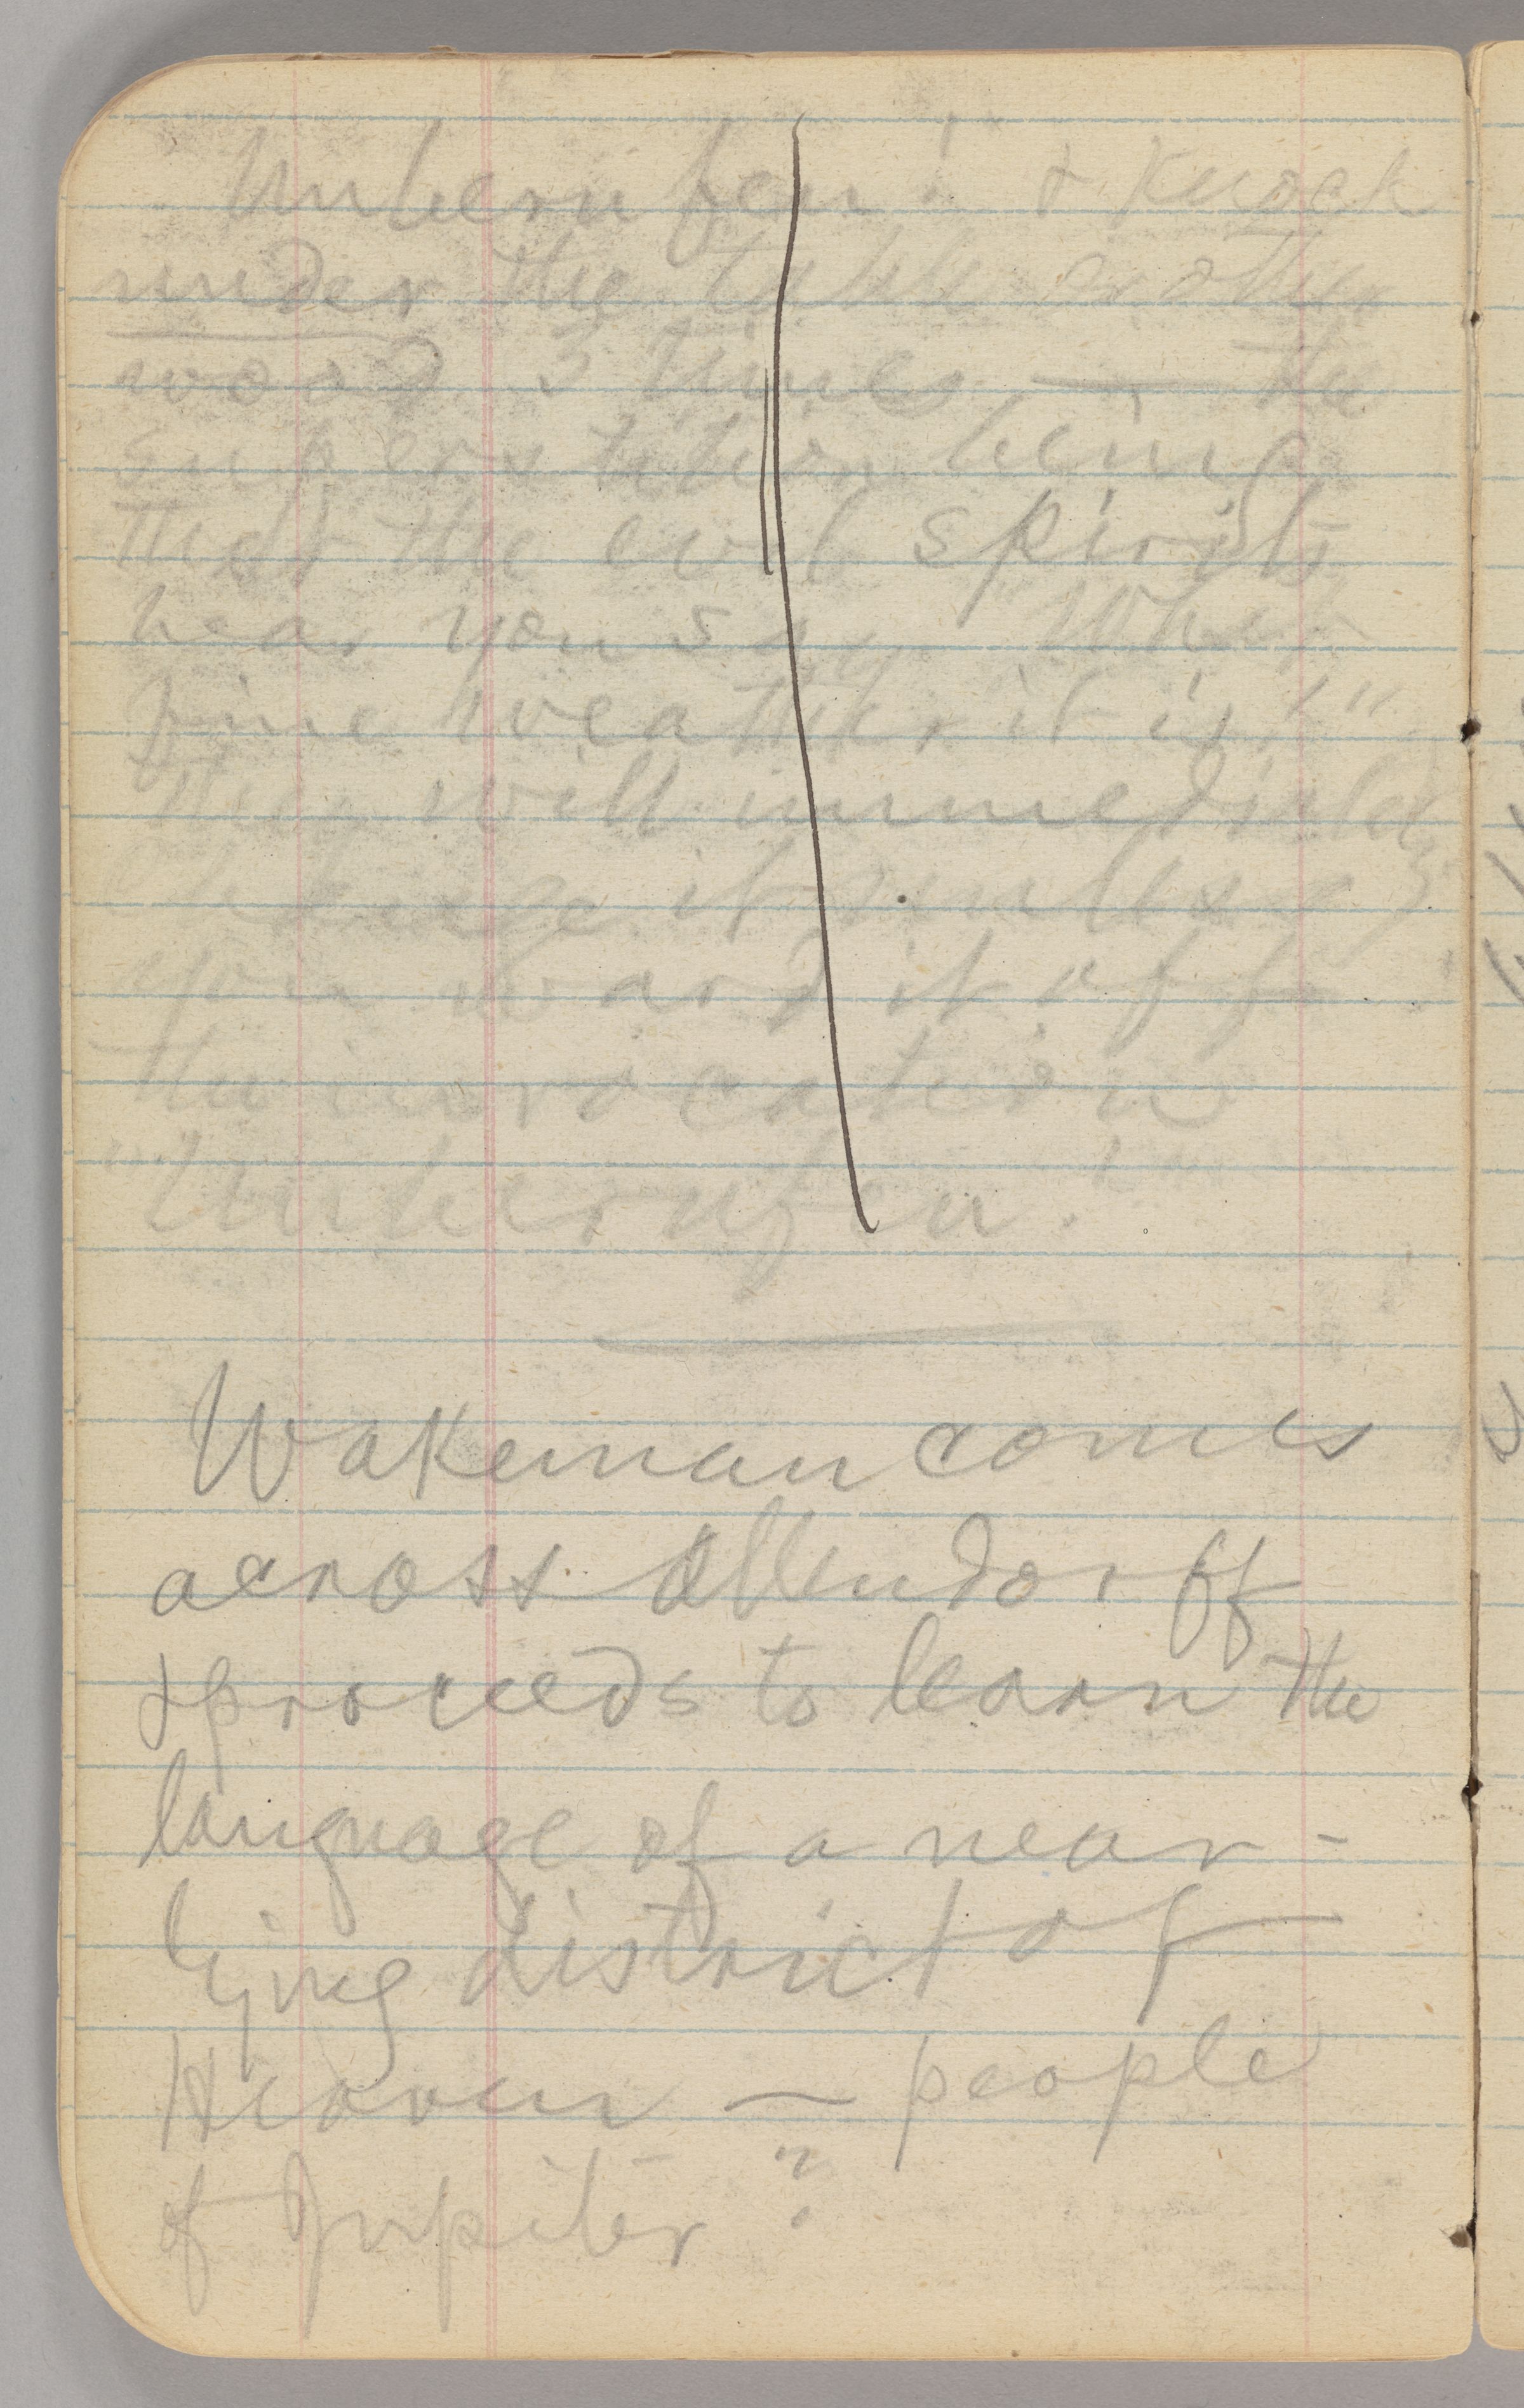 Unberufen! & knock
under the table or other
wood 3 times — the
superstition being
that the evil spirits
hear you say "What
fine weather it is!"
they will immediately
change it unless
you ward it off
the invocation
"Unberufen!"
Wakeman comes
across Ollendorff
& proceeds to learn the
language of a near-
lying district of
Heaven — people
of Jupiter?